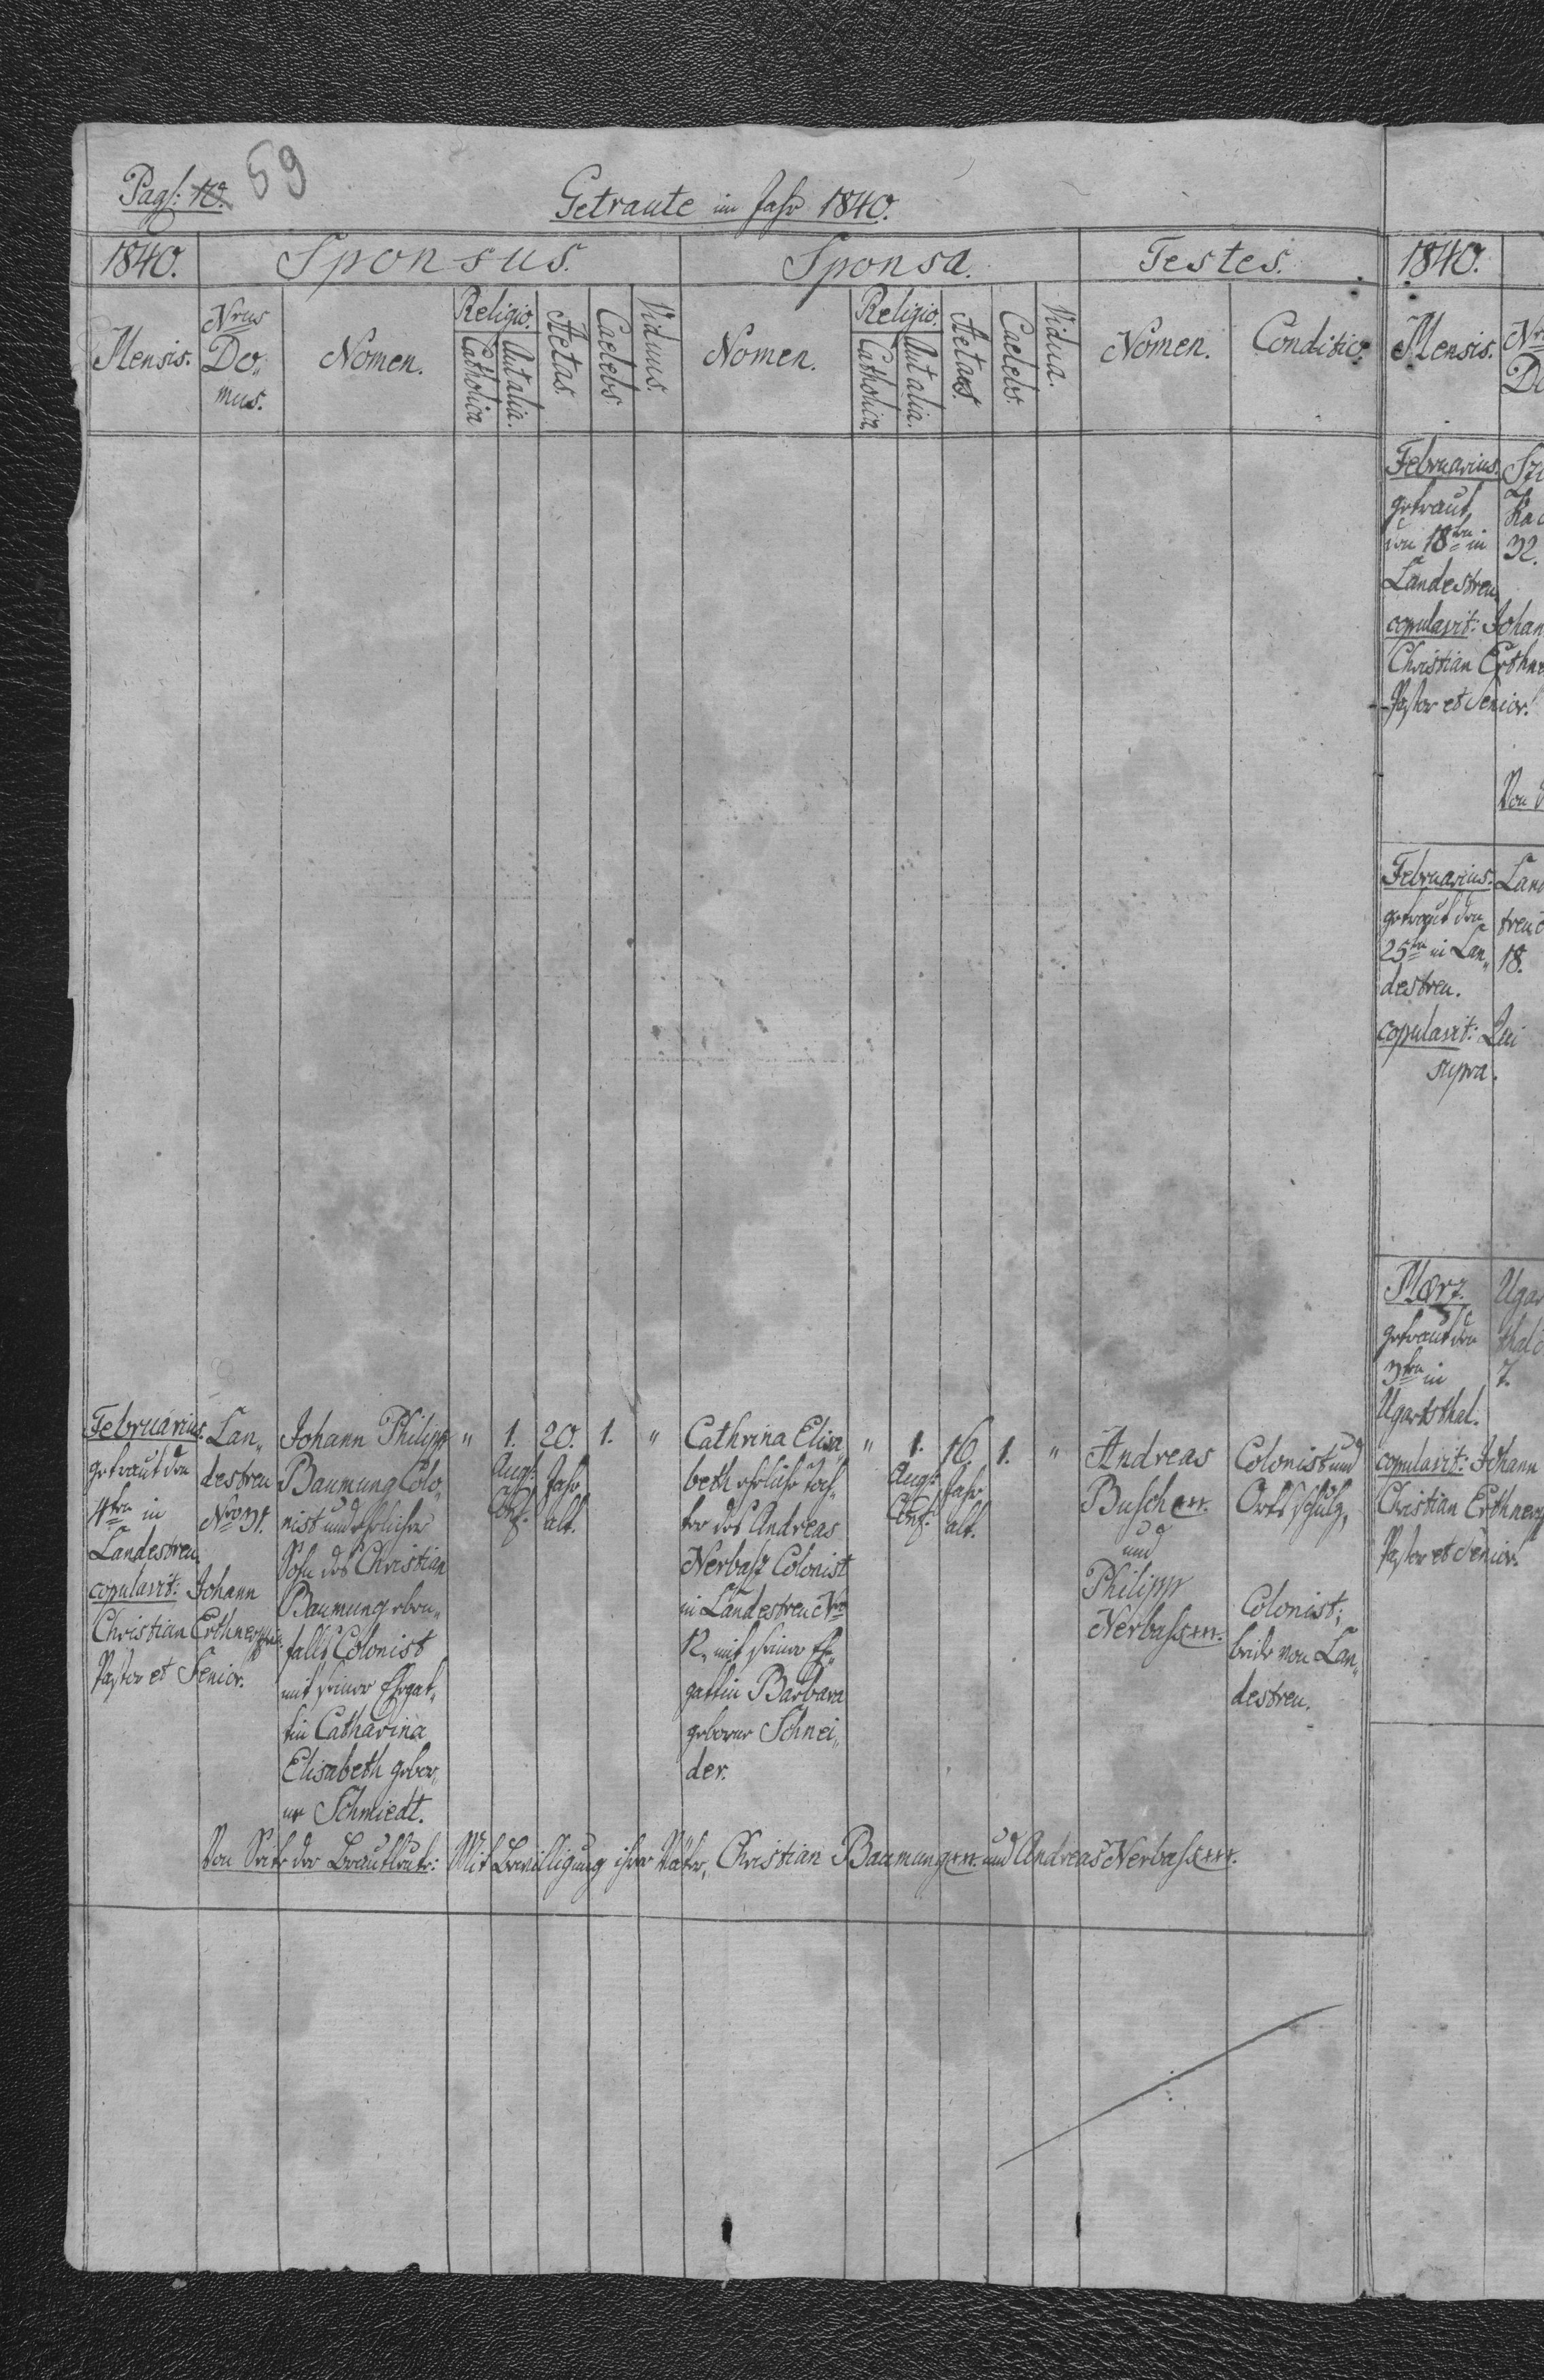 Pag: 10. 59
Getraute im Jahr 1840.
1840. Sponsus. Sponsa. Testes.
Mensis. Nrus Do„ mus. Nomen. Religio. Catholica Aut alia. Aetas. Caelebs. Viduus. Nomen. Religio. Catholica Aut alia. Aetas. Caelebs. Vidua. Nomen. Conditio.
Februarius.
getraut den
4ten in
Landestreu.
copulavit: Johann
Christian Erthner
Pastor et Senior.
Lan„
destreu
Nro 31.
Johann Philipp
Baumung Colo„
nist und ehelicher
Sohn des Christian
Baumung eben„
falls Colonist
mit seiner Ehegat„
tin Catharina
Elisabeth gebor„
ne Schmiedt.
„
1.
Augs:
Conf:
20.
Jahr
alt.
1.
„
Cathrina Elisa„
beth eheliche Toch„
ter des Andreas
Nerbasz Colonist
in Landestreu Nro
12. mit seiner Eh„
gattin Barbara
geborne Schnei„
der.
„
1.
Augs:
Conf:
16.
Jahr
alt.
1.
„
Andreas
Busch +++.
und
Philipp
Nerbass +++.
Colonist und
Ortsschulz,
Colonist;
beide von Lan„
destreu.
Von Seite der Brautleute: Mit Bewilligung ihrer Väter, Christian Baumung +++. und Andreas Nerbass +++.
1840.
Mensis. Nr
Do
Februarius.
getraut
den 18ten in
Landestreu
copulavit: Johan
Christian Erthne
Pastor et Senior.
32.
Von
Februarius.
getraut den
25ten in Lan„
destreu.
copulavit: Qui
supra.
Land
treu
18.
März.
getraut den
3ten in
Ugartsthal.
copulavit: Johann
Christian Erthner
Pastor et Senior.
Ugar
thal
7.